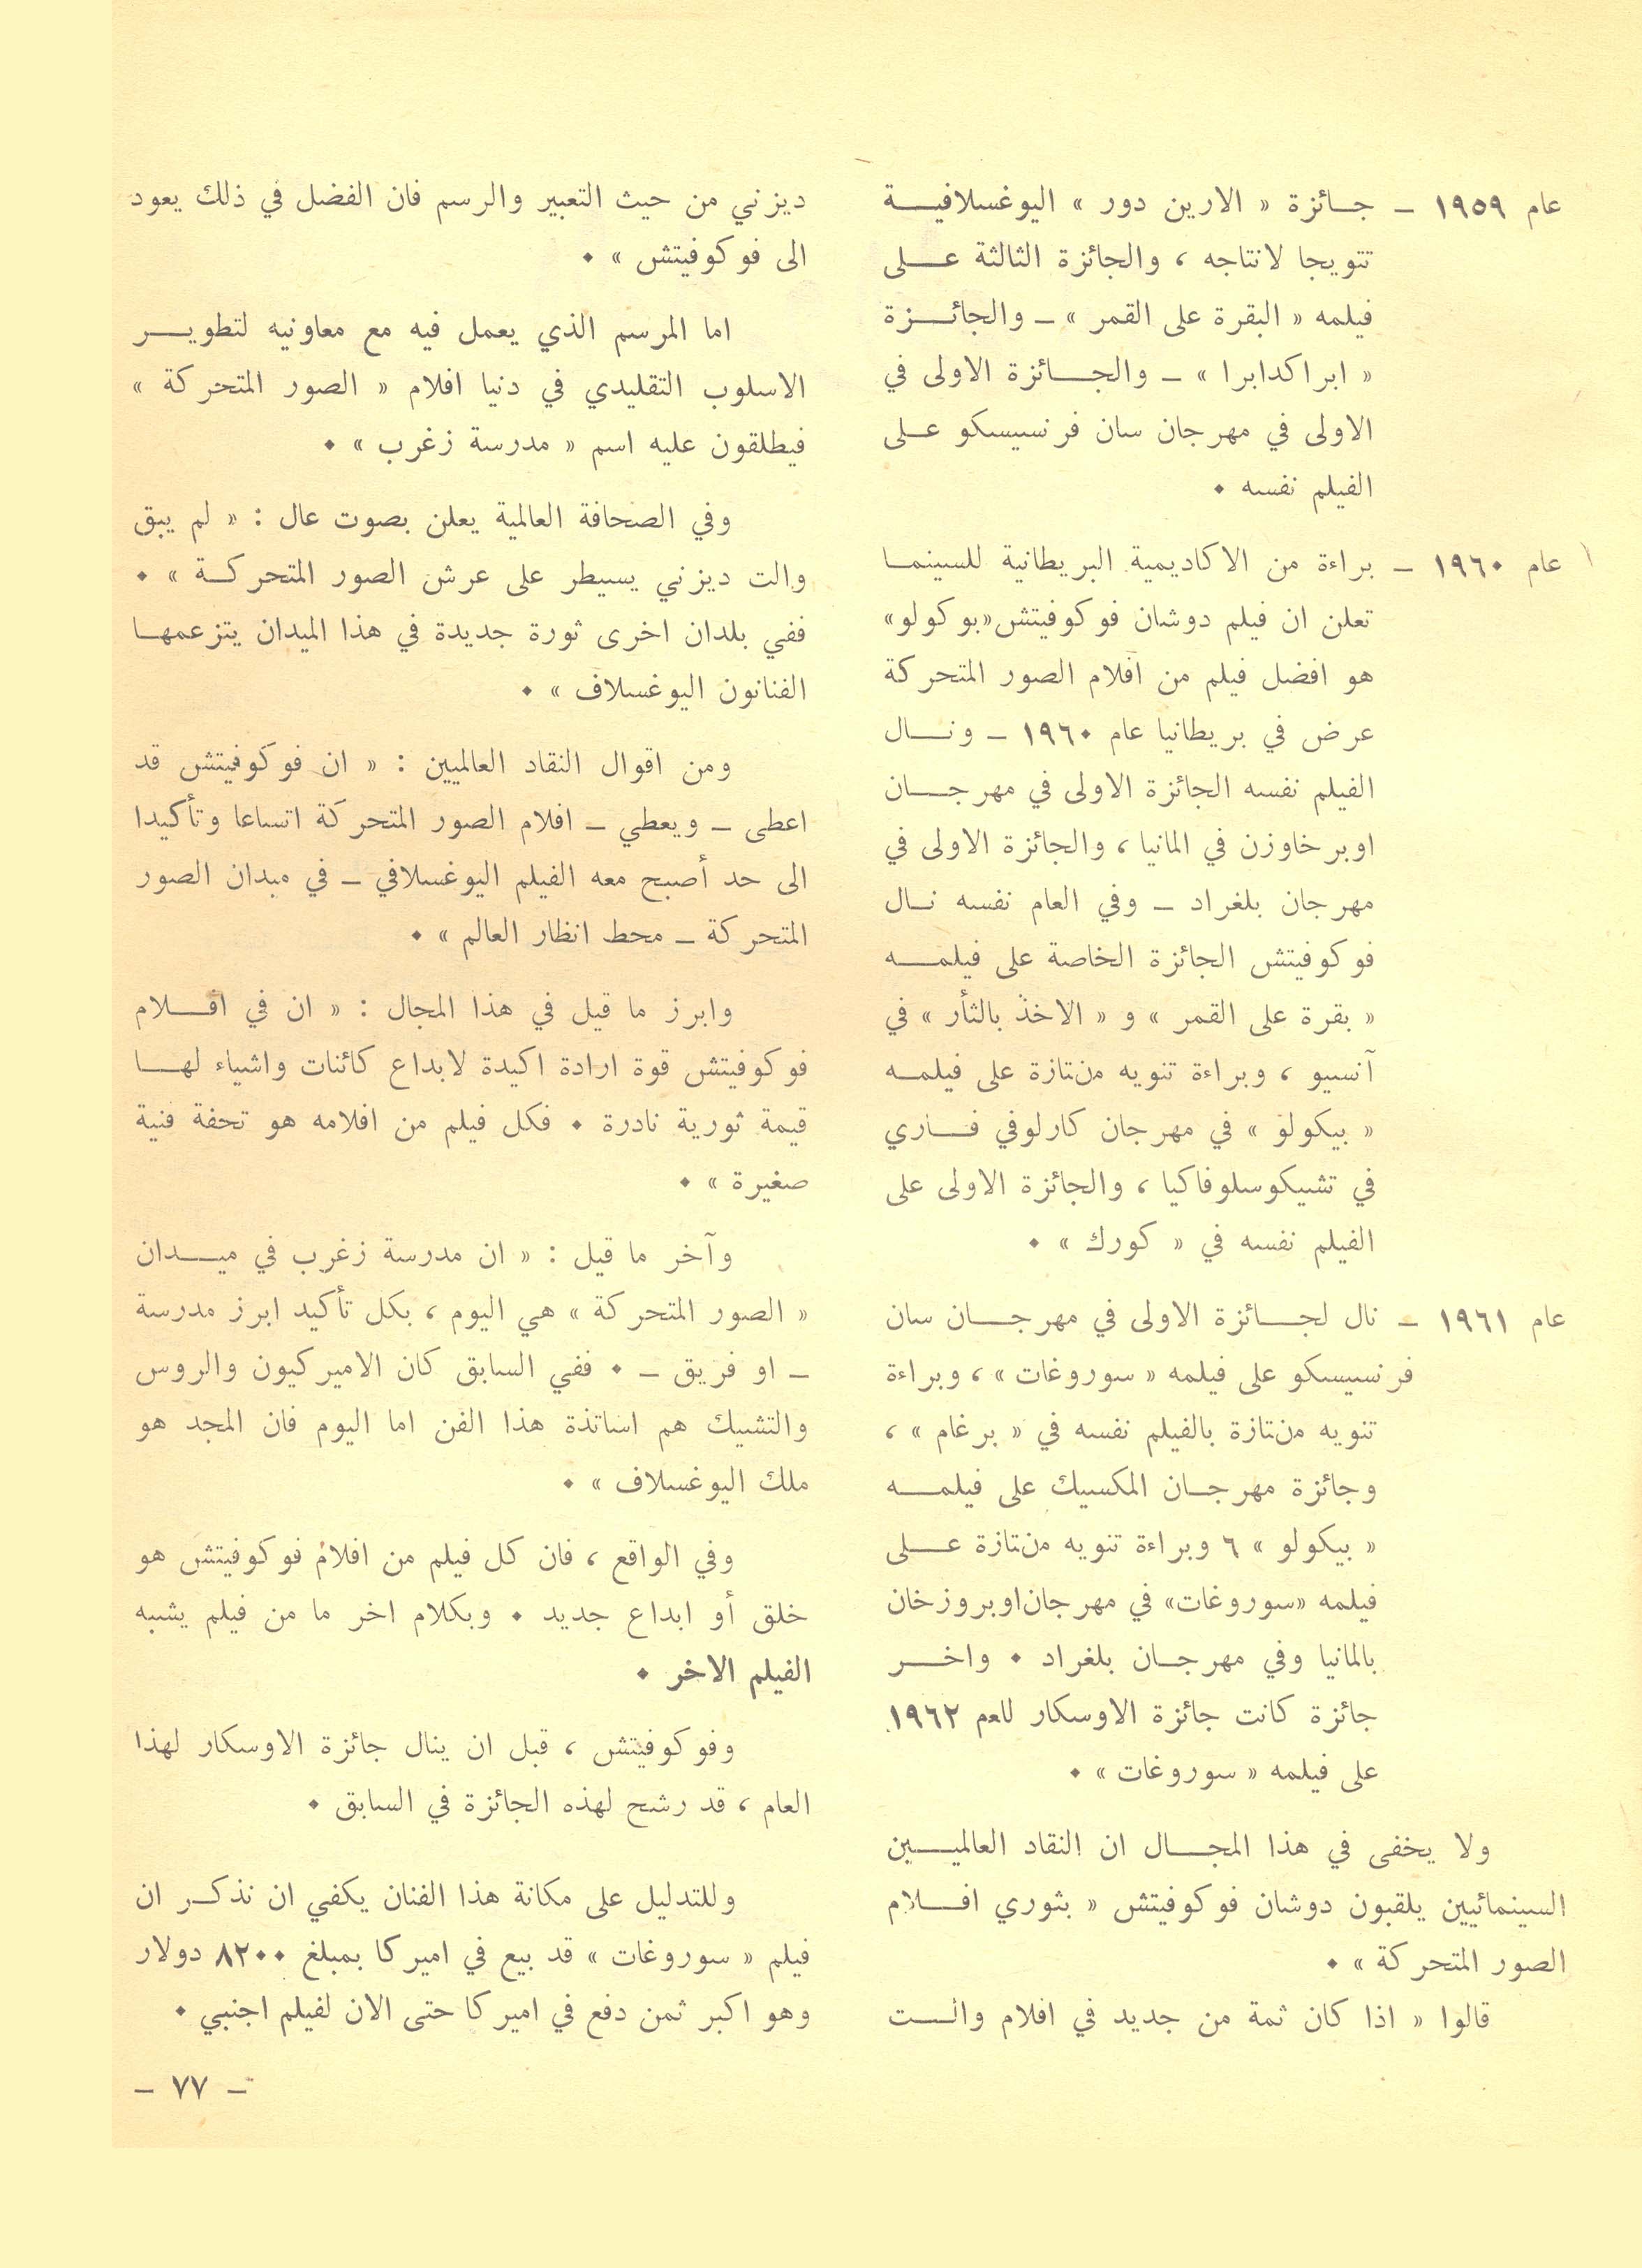 عام ١٩٥٩ – جائزة « الارين دور » اليوغسلافية
تتويجا لانتاجه ، والجائزة الثالثة على
فيلمه « البقرة على القمر » – والجائزة
« ابراكدابرا » – والجائزة الاولى في
الاولى في مهرجان سان فرنسيسكو على
الفيلم نفسه ٠
عام ١٩٦٠ – براءة من الاكاديمية البريطانية للسينما
تعلن ان فيلم دوشان فوكوفيتش «بوكولو»
هو افضل فيلم من افلام الصور المتحركة
عرض في بريطانيا عام ١٩٦٠ – ونال
الفيلم نفسه الجائزة الاولى في مهرجان
اوبرخاوزن في المانيا ، والجائزة الاولى في
مهرجان بلغراد – وفي العام نفسه نال
فوكوفيتش الجائزة الخاصة على فيلمه
« بقرة على القمر » و « الاخذ بالثأر » في
آنسيو ، وبراءة تنويه ممتازة على فيلمه
« بيكولو » في مهرجان كارلوفي فاري
في تشيكوسلوفاكيا ، والجائزة الاولى على
الفيلم نفسه في « كورك » ٠
عام ١٩٦١ – نال لجائزة الاولى في مهرجان سان
فرنسيسكو على فيلمه « سوروغات » ، وبراءة
تنويه ممتازة بالفيلم نفسه في « برغام » ،
وجائزة مهرجان المكسيك على فيلمه
« بيكولو » ٦ وبراءة تنويه ممتازة على
فيلمه «سوروغات» في مهرجان اوبروزخان
بالمانيا وفي مهرجان بلغراد ٠ واخر
جائزة كانت جائزة الاوسكار للعم ١٩٦٢
على فيلمه « سوروغات » ٠
ولا يخفى في هذا المجال ان النقاد العالميين
السينمائيين يلقبون دوشان فوكوفيتش « بثوري افلام
الصور المتحركة » ٠
قالوا « اذا كان ثمة من جديد في افلام والست
ديزني من حيث التعبير والرسم فان الفضل في ذلك يعود
الى فوكوفيتش » ٠
اما المرسم الذي يعمل فيه مع معاونيه لتطوير
الاسلوب التقليدي في دنيا افلام « الصور المتحركة »
فيطلقون عليه اسم « مدرسة زغرب » ٠
وفي الصحافة العالمية يعلن بصوت عال : « لم يبق
والت ديزني يسيطر على عرش الصور المتحركة » ٠
ففي بلدان اخرى ثورة جديدة في هذا الميدان يتزعمها
الفنانون اليوغسلاف » ٠
ومن اقوال النقاد العالميين : « ان فوكوفيتش قد
اعطى – ويعطي – افلام الصور المتحركة اتساعا وتأكيدا
الى حد أصبح معه الفيلم اليوغسلافي – في ميدان الصور
المتحركة – محط انظار العالم » ٠
وابرز ما قيل في هذا المجال : « ان في افلام
فوكوفيتش قوة ارادة اكيدة لابداع كائنات واشياء لها
قيمة ثورية نادرة ٠ فكل فيلم من افلامه هو تحفة فنية
صغيرة » ٠
وآخر ما قيل : « ان مدرسة زغرب في ميدان
« الصور المتحركة » هي اليوم ، بكل تأكيد ابرز مدرسة
– او فريق – ٠ ففي السابق كان الاميركيون والروس
والتشيك هم اساتذة هذا الفن اما اليوم فان المجد هو
ملك اليوغسلاف » ٠
وفي الواقع ، فان كل فيلم من افلام فوكوفيتش هو
خلق أو ابداع جديد ٠ وبكلام اخر ما من فيلم يشبه
الفيلم الاخر ٠
وفوكوفيتش ، قبل ان ينال جائزة الاوسكار لهذا
العام ، قد رشح لهذه الجائزة في السابق ٠
وللتدليل على مكانة هذا الفنان يكفي ان نذكر ان
فيلم « سوروغات » قد بيع في اميركا بمبلغ ٨٢٠٠ دولار
وهو اكبر ثمن دفع في اميركا حتى الان لفيلم اجنبي ٠
– ٧٧ –